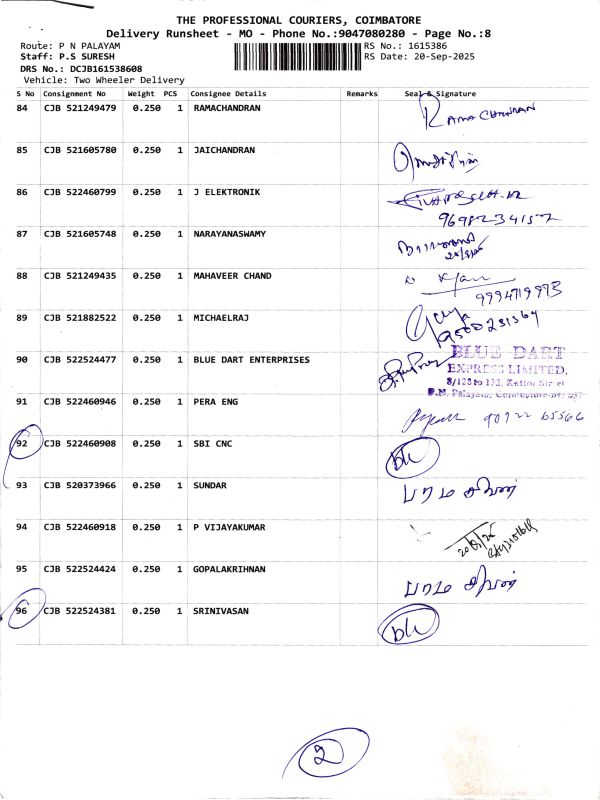 THE PROFESSIONAL COURIERS, COIMBATORE
Delivery Runsheet - MO - Phone No.:9047080280 - Page No.:8
Route: P N PALAYAM RS No.: 1615386
Staff: P.S SURESH RS Date: 20-Sep-2025
DRS No.: DCJB161538608
Vehicle: Two Wheeler Delivery
S No Consignment No Weight PCS Consignee Details Remarks Seal & Signature
84 CJB 521249479 0.250 1 RAMACHANDRAN RAMA CHANDRAN
85 CJB 521605780 0.250 1 JAICHANDRAN
86 CJB 522460799 0.250 1 J ELEKTRONIK
9698234152
87 CJB 521605748 0.250 1 NARAYANASWAMY
88 CJB 521249435 0.250 1 MAHAVEER CHAND
9994719973
89 CJB 521882522 0.250 1 MICHAELRAJ
90 CJB 522524477 0.250 1 BLUE DART ENTERPRISES BLUE DART
EXPRESS LIMITED.
91 CJB 522460946 0.250 1 PERA ENG
92 CJB 522460908 0.250 1 SBI CNC
93 CJB 520373966 0.250 1 SUNDAR
94 CJB 522460918 0.250 1 P VIJAYAKUMAR
95 CJB 522524424 0.250 1 GOPALAKRIHNAN
96 CJB 522524381 0.250 1 SRINIVASAN
2